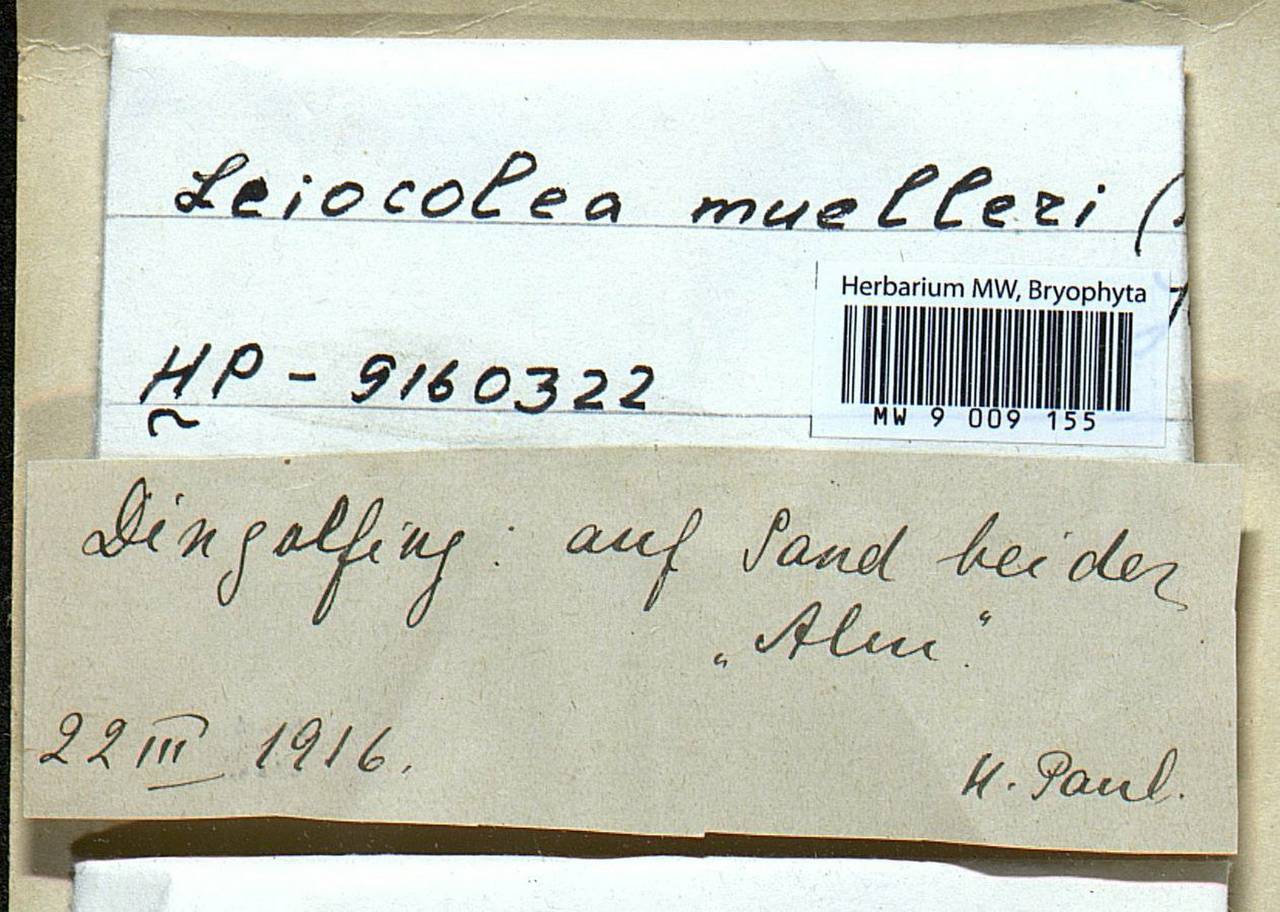 Leiocolea muelleri (
Herbarium MW, Bryophyta
HP - 9160322
MW 9 009 155
Dingolfing: auf Sand bei der
„Alm“.
22 III 1916.
H. Paul.